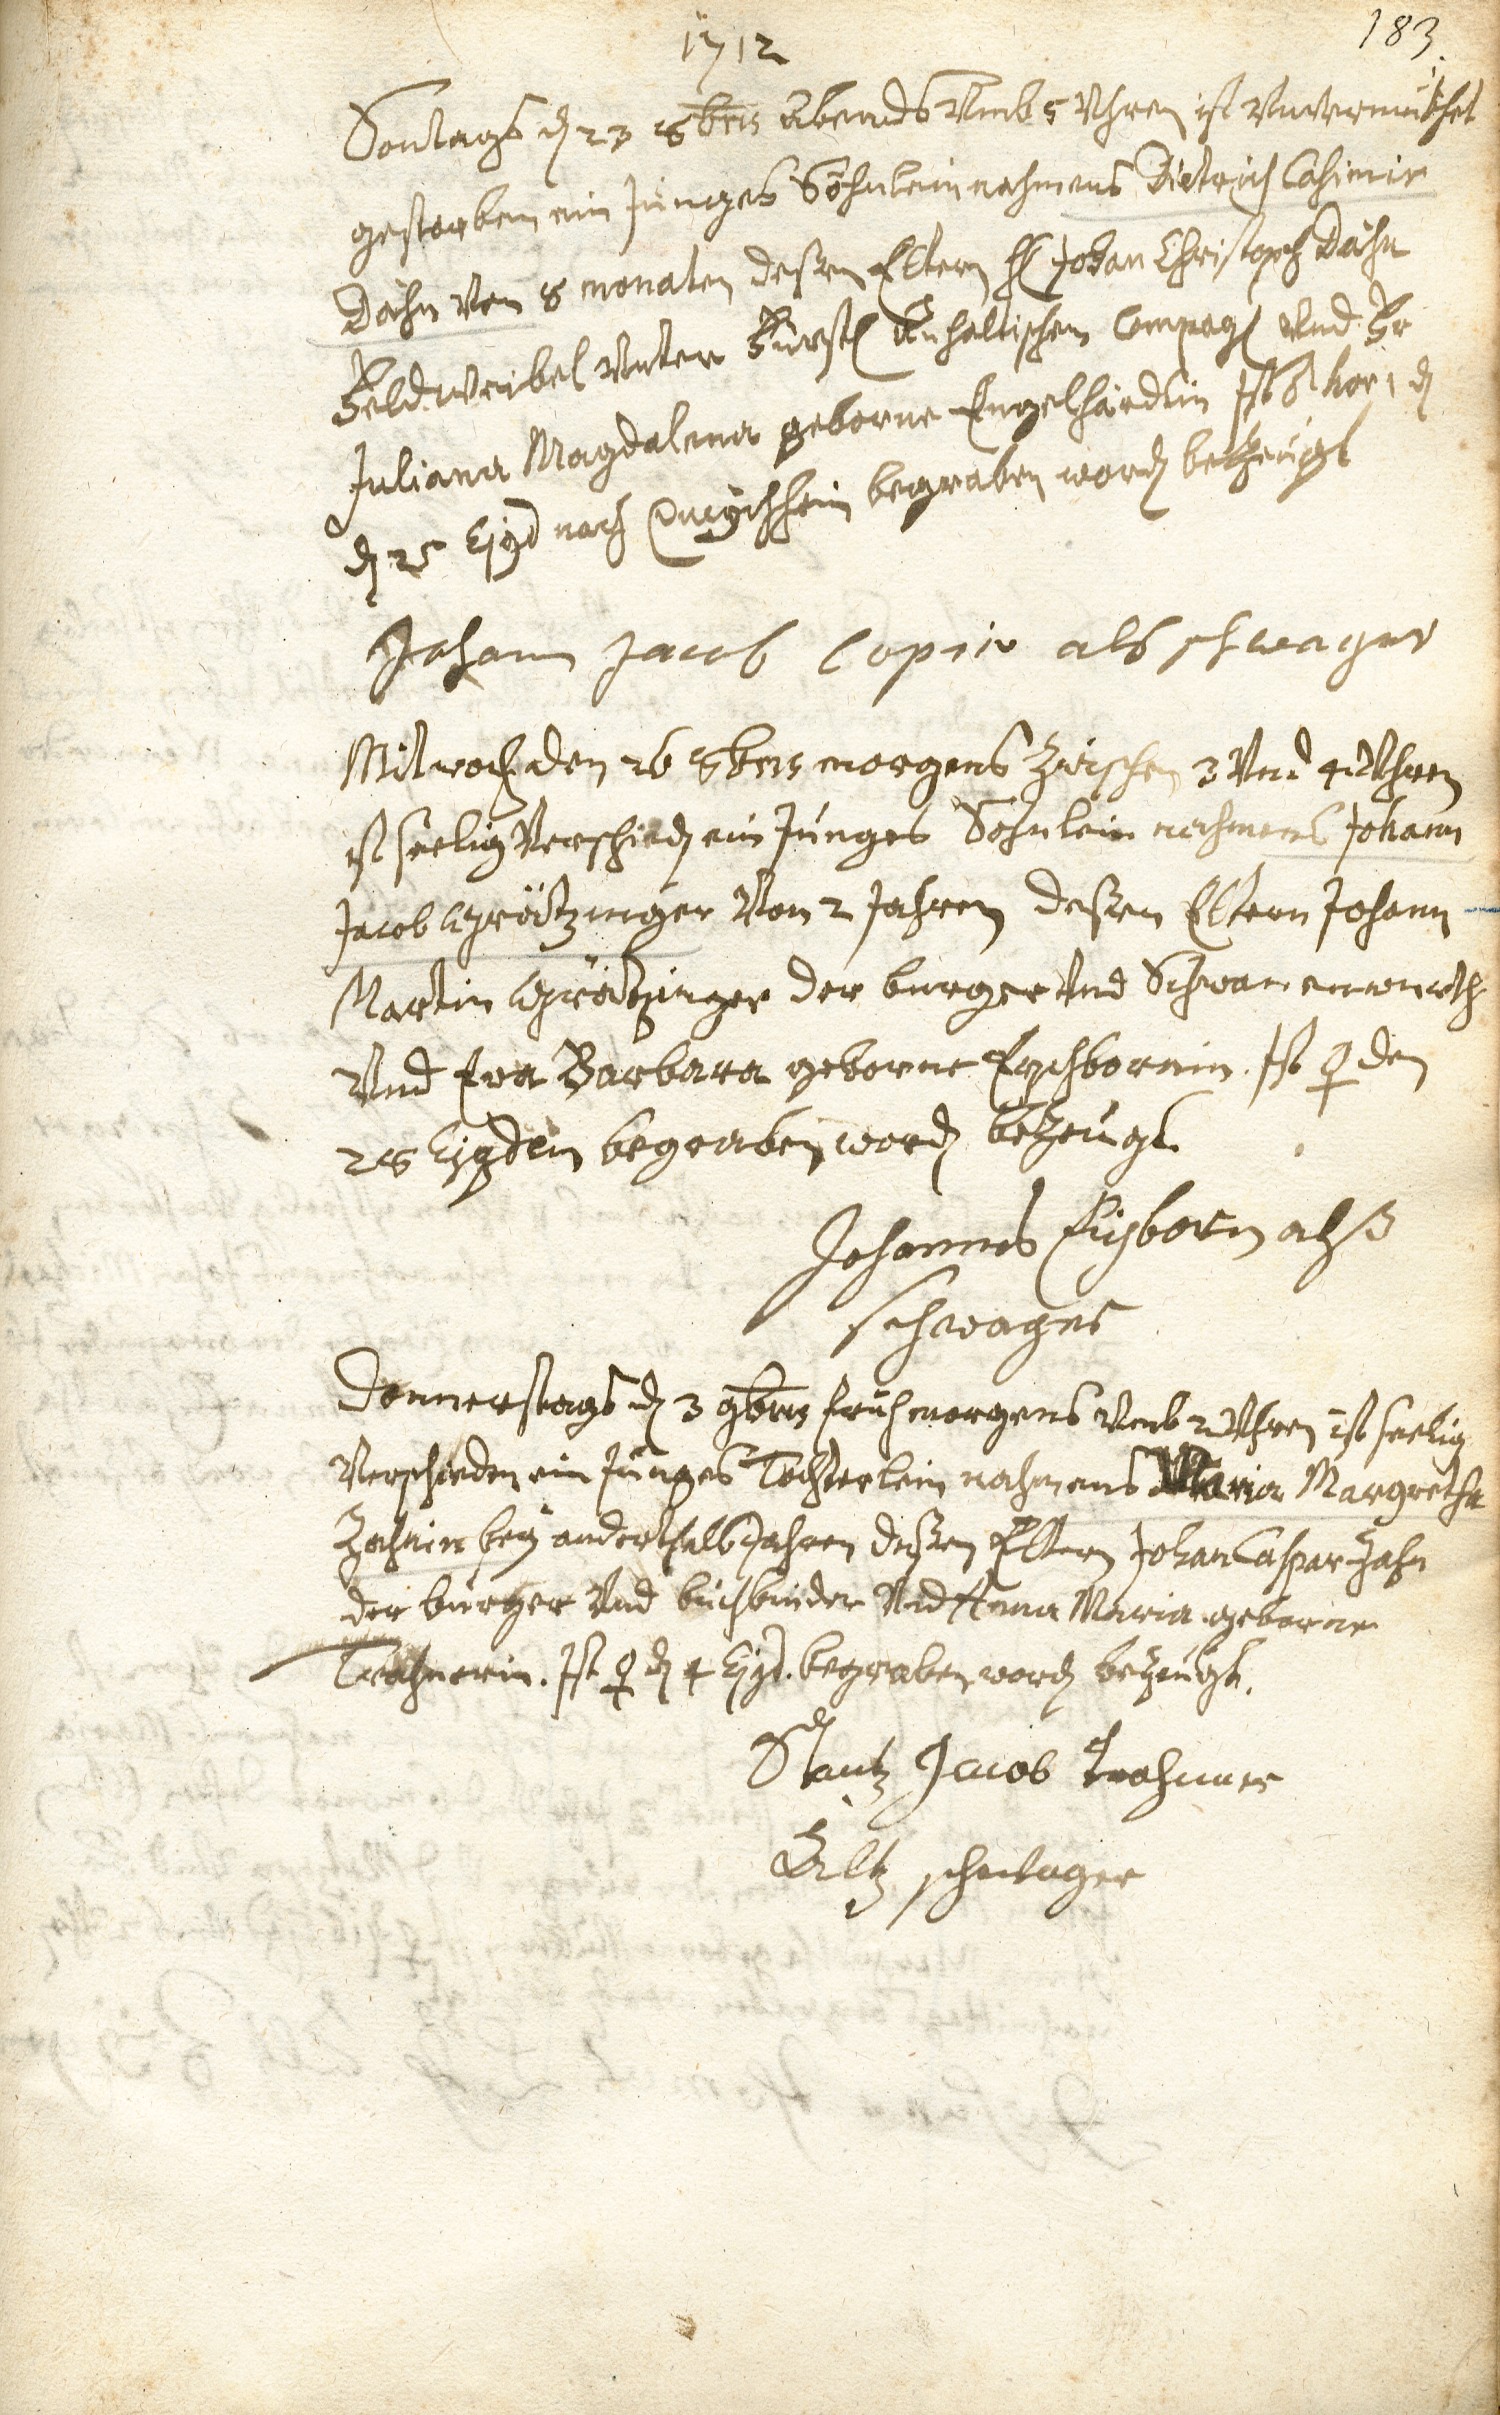 1712
183.
Sontags d 23 8bris Abends Umb 5 Uhren ist Unvermuthet
gestorben ein Junges Söhnlein nahmens Dietrich Casimir
Döhn Von 8 monaten deßen Eltern H Johan Christoph Döhn
Feldweibel Unter Fürstl Anhaltischen Compag Und Fr
Juliana Magdalena geborne Engelhärdtin Ist
d 25 Ejgd nach begraben word betzeügt
Johann Jacob als schwager
Mitwoch den 26 8bris morgens zwischen 3 Und 4 Uhren
ist seelig Verschied ein Junges Söhnlein nahmens Johann
Jacob Grötzinger Von 2 Jahren deßen Eltern Johann
Martin Grötzinger der burger Und Schwanenwürth
Und Eva Barbara geborne Eychbornin. Ist ♀ den
28 Ejgdem begraben word betzeugt
Johannes Eichborn alß
schwager
Donnerstags d 3 9bris früh morgens Umb 2 Uhren ist seelig
Verschieden ein Junges Töchterlein nahmens Maria Margretha
Zahnin bey anderthalb Jahren deßen Eltern Johan Caspar Zahn
der burger Und buchbinder Und Anna Maria geborne
Trachnerin. Ist ♀ d 4 Ejgd. begraben word betzeügt.
Jacob
schwager